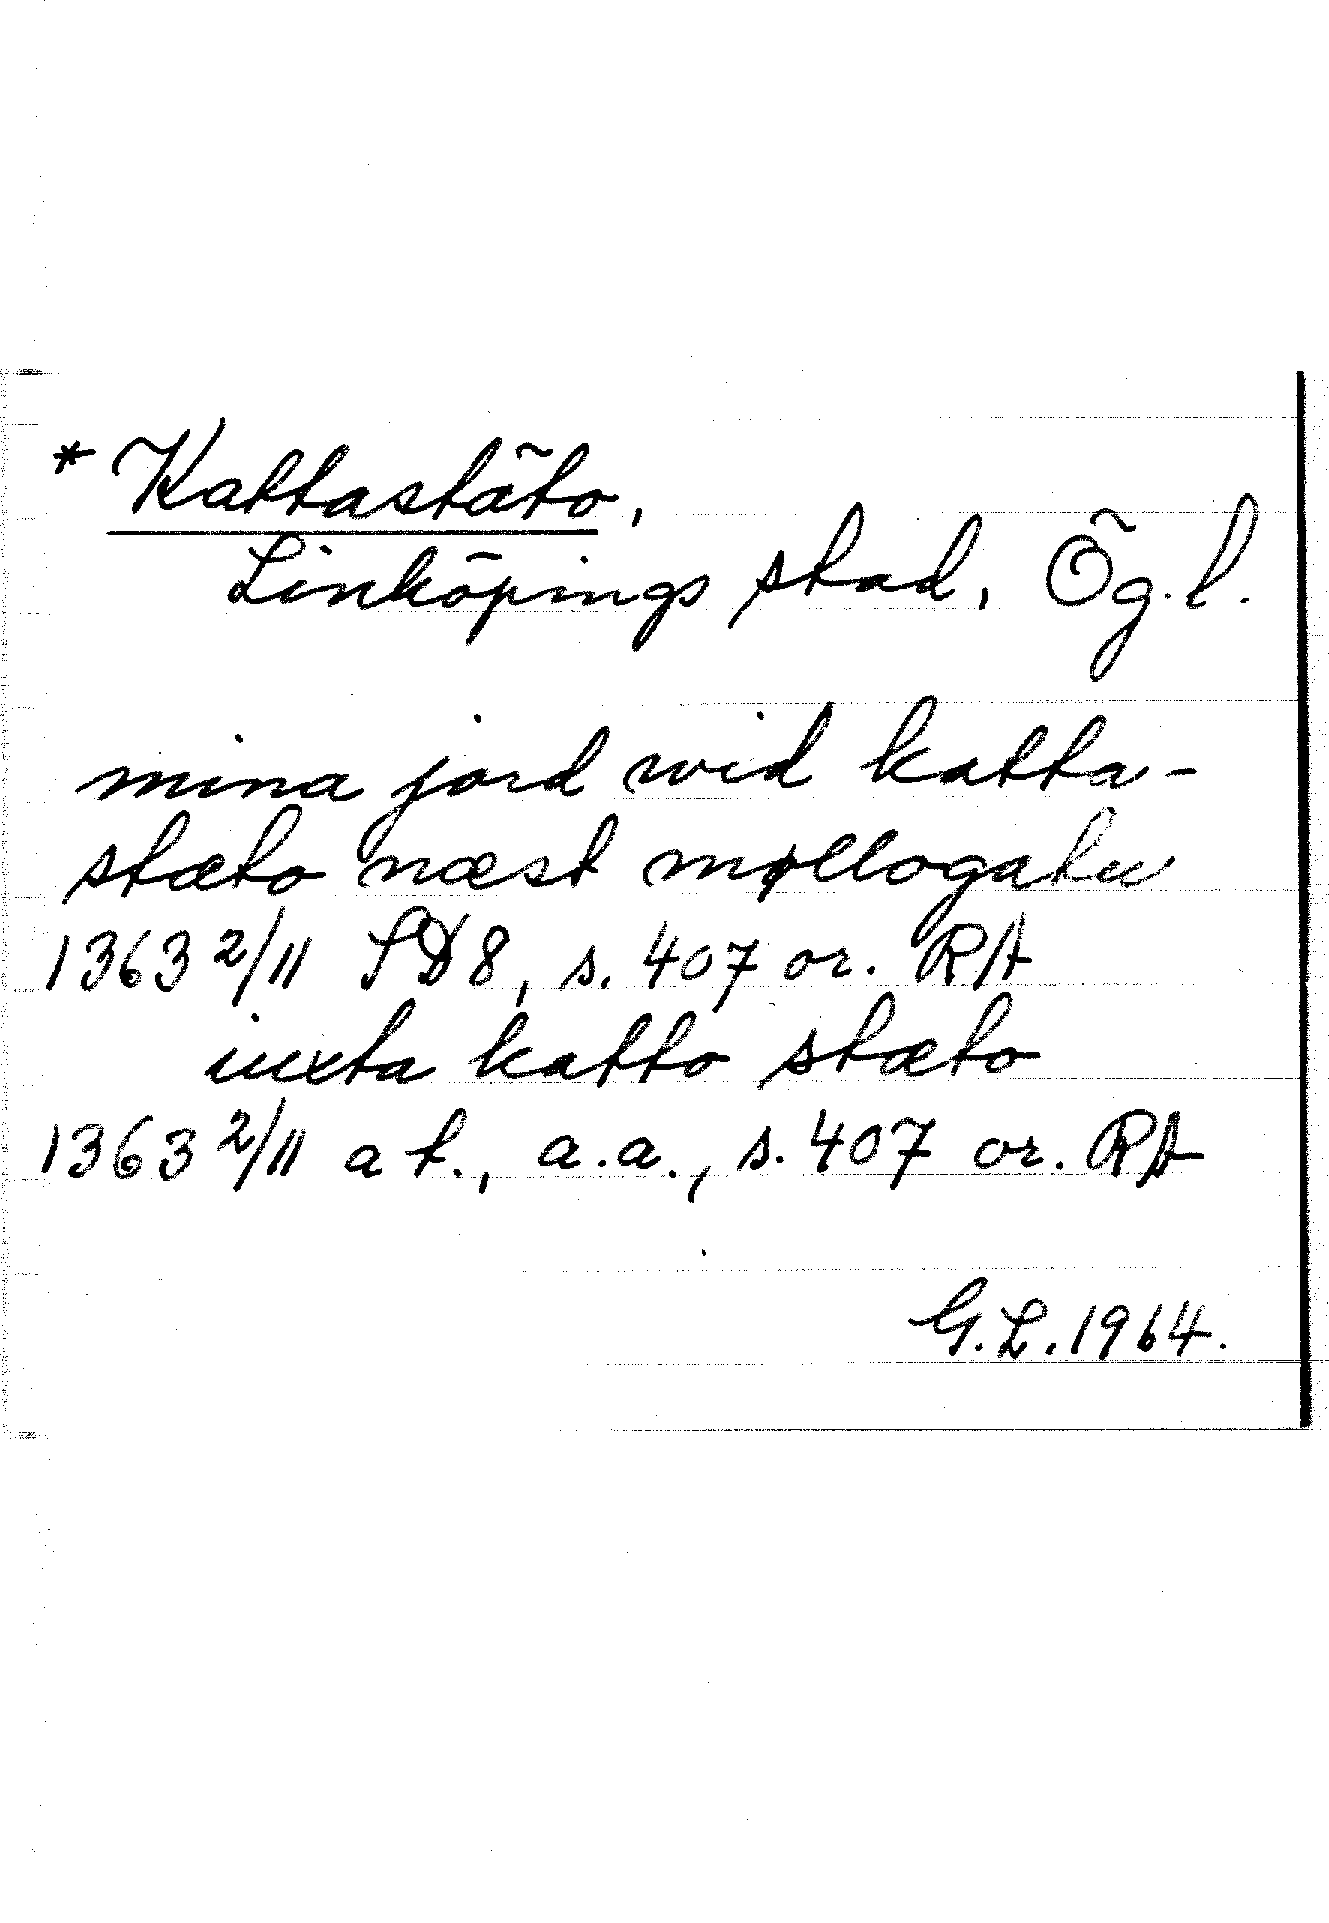 * Kattastäto,
Linköpings stad, Ög. l.
mina jord wid katta-
stæto næst møllogatu
1363 2/11 SD8, s. 407 or. RA
iuxta katto stæto
1363 2/11 at., a.a., s. 407 or. RA
G.L. 1964.